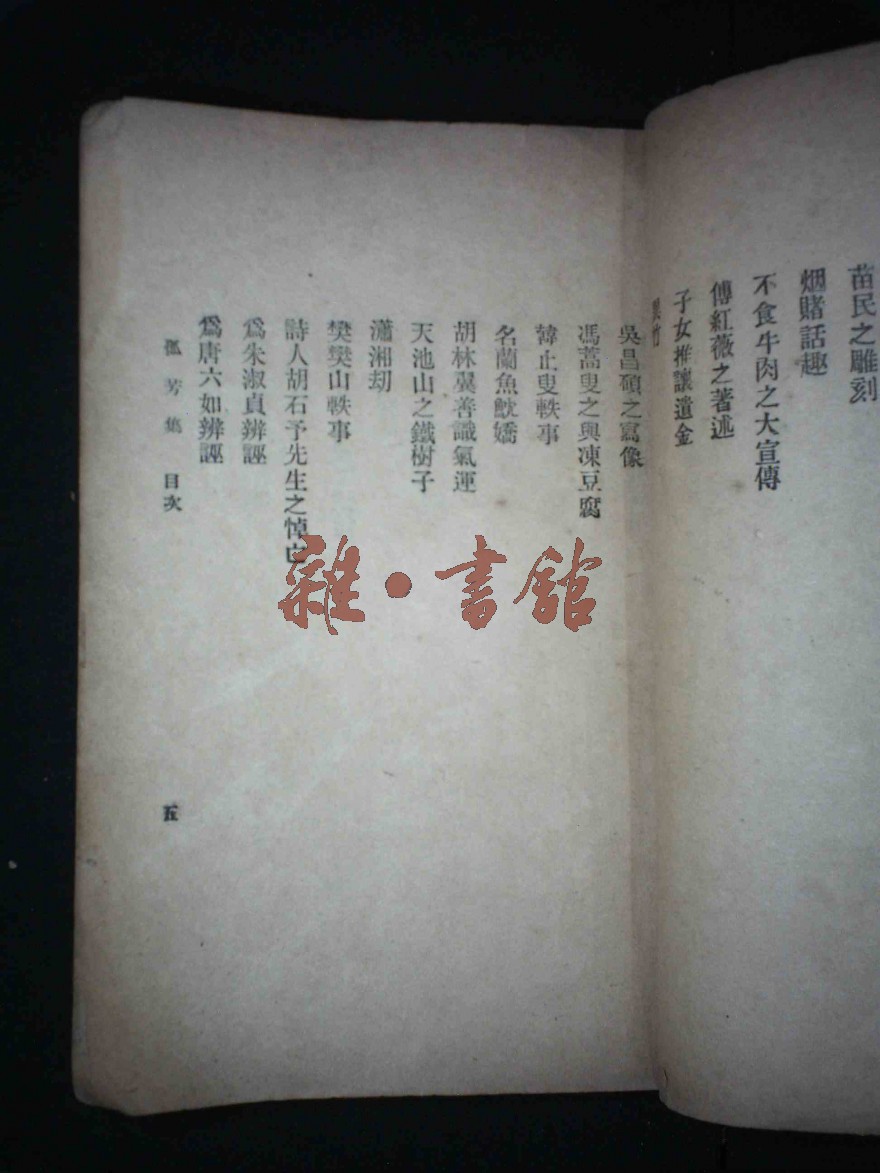 苗民之雕刻
烟賭話趣
不食牛肉之大宣傳
傅紅薇之著述
子女推讓遺金
竹
吳昌碩之寫像
馮蒿叟之與凍豆腐
韓止叟軼事
名蘭魚魫嬌
胡林翼善識氣運
天池山之鐵樹子
瀟湘刧
樊樊山軼事
詩人胡石予先生之悼亡
爲朱淑貞辨誣
爲唐六如辨誣
孤芳集 目次
五
雜·書館